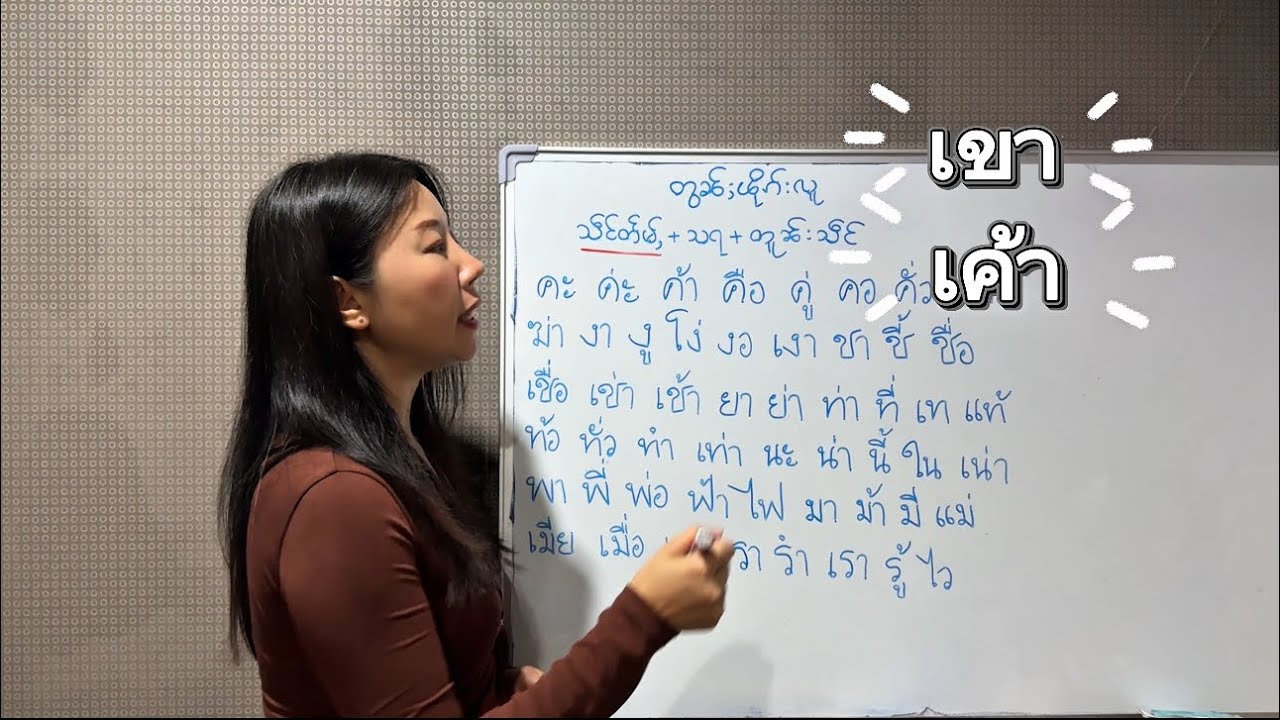 เขา
เค้า
တွၼ်ႈၽိုၵ်းလူ
သဵင်တႅမ်ႇ + သရ + တူၼ်းသဵင်
คะ ค่ะ ค้า คือ คู่ คอ คั่ว
ฆ่า งา งู โง่ งอ เงา ชา ชี้ ชื่อ
เชื่อ เช่า เช้า ยา ย่า ท่า ที่ เท แท้
ท้อ ทั่ว ทำ เท่า นะ น่า นี้ ใน เน่า
พา พี่ พ่อ ฟ้า ไฟ มา ม้า มี แม่
เมีย เมื่อ รำ เรา รู้ ไว